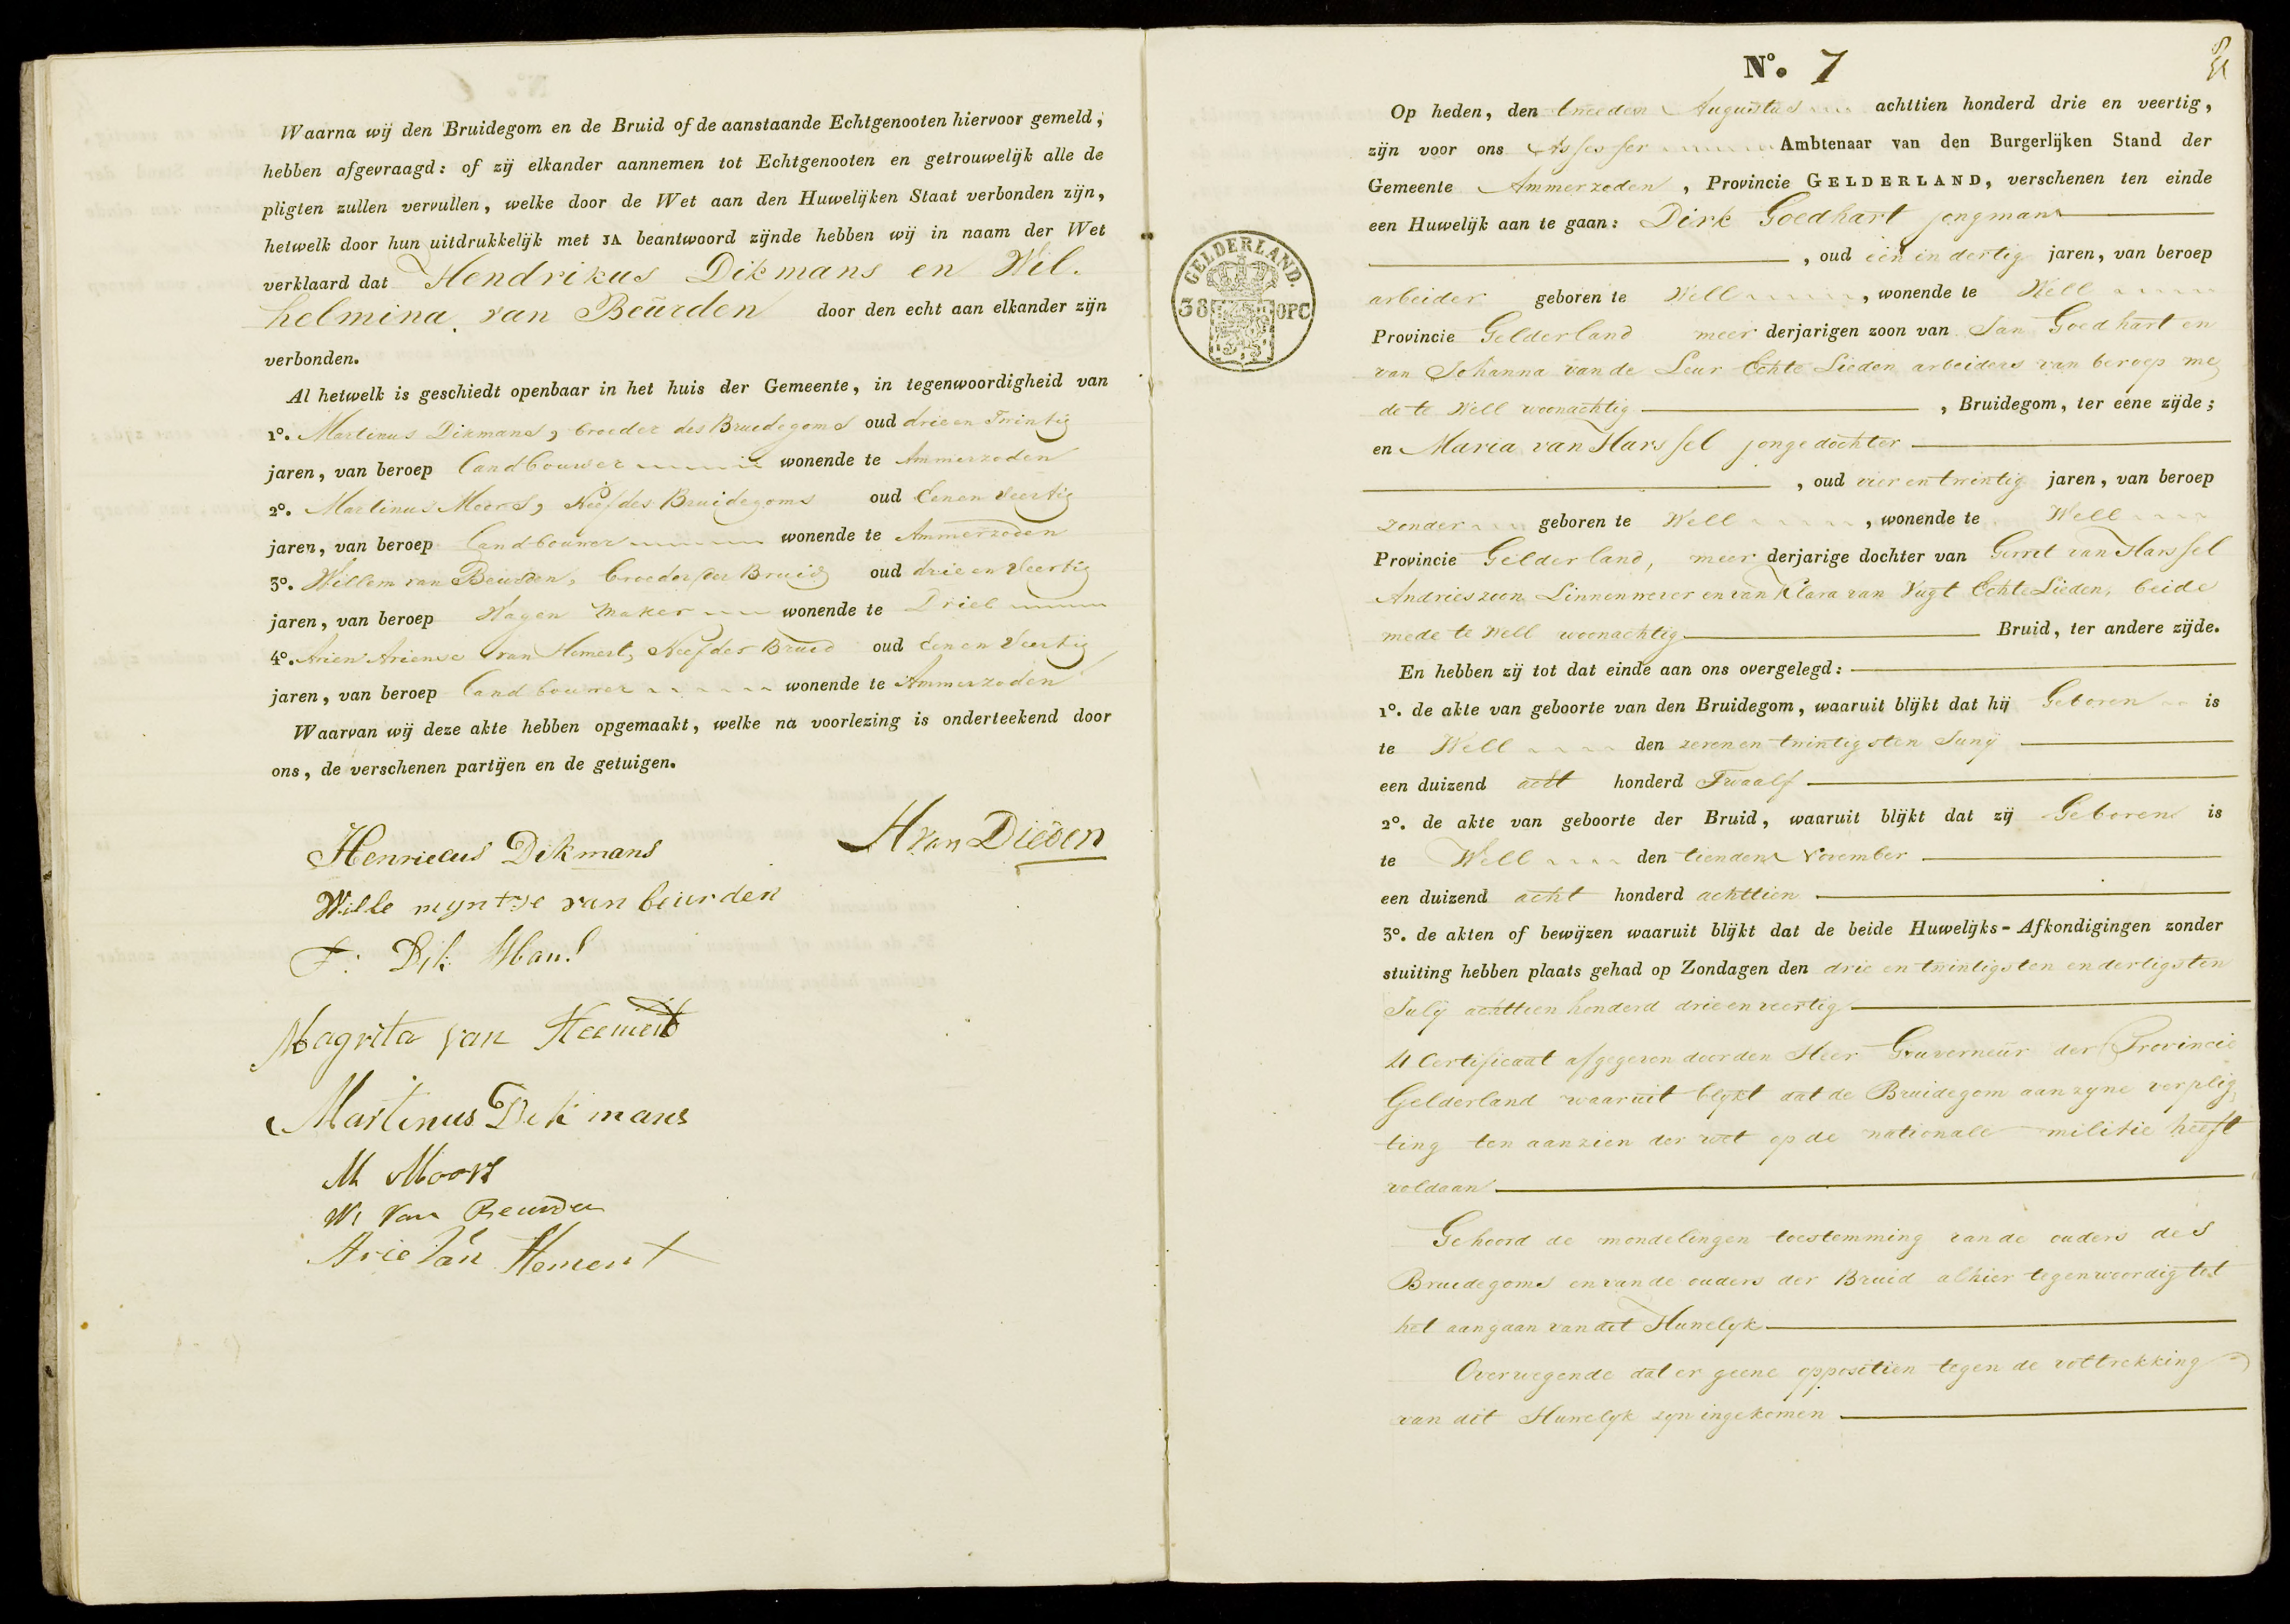 Waarna wij den Bruidegom en de Bruid of de aanstaande Echtgenooten hiervoor gemeld,
hebben afgevraagd: of zij elkander aannemen tot Echtgenooten en getrouwelijk alle de
pligten zullen vervullen, welke door de Wet aan den Huwelijken Staat verbonden zijn,
hetwelk door hun uitdrukkelijk met JA beantwoord zijnde hebben wij in naam der Wet
verklaard dat Hendrikus Dikmans en Wil.
helmina van Beurden door den echt aan elkander zijn
verbonden.
Al hetwelk is geschiedt openbaar in het huis der Gemeente, in tegenwoordigheid van
1º. Martinus Dikmans, broeder des Bruidegoms oud drie en Twintig
jaren, van beroep Landbouwer wonende te Ammerzoden
2º. Martinus Moors, Neef des Bruidegoms oud Eenen Veertig
jaren, van beroep Landbouwer wonende te Ammerzoden
3º. Willem van Beurden, broeder der Bruid oud drie en Veertig
jaren, van beroep Wagen maker wonende te Driel
4º. Arien Ariense van Hemert, Neef der Bruid oud Eenen Veertig
jaren, van beroep Landbouwer wonende te Ammerzoden
Waarvan wij deze akte hebben opgemaakt, welke na voorlezing is onderteekend door
ons, de verschenen partijen en de getuigen.
Henricus Dikmans
H van Dieden
Wille myntje van beurden
F: Dik Mans
Magrita van Heemert
Martinus Dikmans
M Moors
W van Beurden
Arie van Hemert
Nº. 7
GELDERLAND.
38 OPC
Op heden, den tweeden Augustus achttien honderd drie en veertig,
zijn voor ons Assessor Ambtenaar van den Burgerlijken Stand der
Gemeente Ammerzoden, Provincie GELDERLAND, verschenen ten einde
een Huwelijk aan te gaan: Dirk Goedhart jongman
, oud een in dertig jaren, van beroep
arbeider geboren te Well, wonende te Well
Provincie Gelderland meer derjarigen zoon van Jan Goedhart en
van Johanna van de Leur Echte Lieden arbeiders van beroep me
de te Well woonachtig, Bruidegom, ter eene zijde;
en Maria van Harssel jonge dochter
, oud vier en twintig jaren, van beroep
zonder geboren te Well, wonende te Well
Provincie Gelderland, meer derjarige dochter van Gerret van Harssel
Andries zoon Linnenwever en van Klara van Vugt Echte Lieden, beide
mede te Well woonachtig Bruid, ter andere zijde.
En hebben zij tot dat einde aan ons overgelegd:
1º. de akte van geboorte van den Bruidegom, waaruit blijkt dat hij Geboren is
te Well den zevenen twintigsten Junij
een duizend acht honderd Twaalf
2º. de akte van geboorte der Bruid, waaruit blijkt dat zij Geboren is
te Well den tienden November
een duizend acht honderd achttien
3º. de akten of bewijzen waaruit blijkt dat de beide Huwelijks-Afkondigingen zonder
stuiting hebben plaats gehad op Zondagen den drie en twintigsten en dertigsten
Julij achttien honderd drie en veertig
4 Certificaat afgegeven door den Heer Gouverneur der Provincie
Gelderland waaruit blykt dat de Bruidegom aan zyne verplig
ting ten aanzien der wet op de nationale militie heeft
voldaan
Gehoord de mondelingen toestemming van de ouders des
Bruidegoms en van de ouders der Bruid alhier tegenwoordig tot
het aangaan van dit Huwelyk
Overwegende dat er geene oppositien tegen de voltrekking
van dit Huwelyk zyn ingekomen